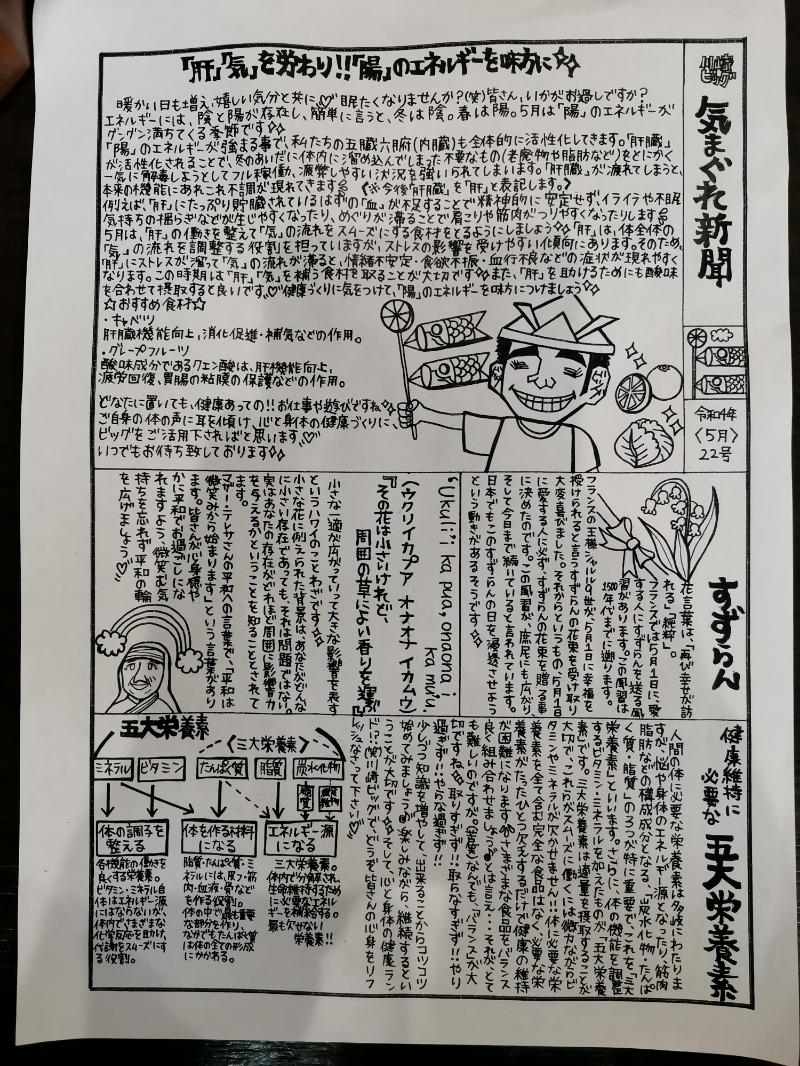 「肝」「気」を労わり!!「陽」のエネルギーを味方に☆☆
川崎
ビッグ
気まぐれ新聞
令和4年
〈5月〉
22号
暖かい日も増え、嬉しい気分と共に♡眠たくなりませんか?(笑)皆さん、いかがお過しですか?
エネルギーには、陰と陽が存在し、簡単に言うと、冬は陰。春は陽。5月は「陽」のエネルギーが
グングン満ちてくる季節です☆☆
「陽」のエネルギーが強まる事で、私たちの五臓六府(内臓)も全体的に活性化してきます。「肝臓」
が活性化されることで、冬のあいだに体内に溜め込んでしまった不要なもの(老廃物や脂肪など)をとにかく
一気に解毒しようとしてフル稼働、疲弊しやすい状況を強いられてしまいます。「肝臓」が疲れてしまうと、
本来の機能にあれこれ不調が現れてきます 〈※今後「肝臓」を「肝」と表記します。〉
例えば、「肝」にたっぷり貯臓されているはずの「血」が不足することで精神的に安定せず、イライラや不眠
気持ちの揺らぎなどが生じやすくなったり、めぐりが滞ることで肩こりや筋肉がつりやすくなったりします
5月は、「肝」の働きを整えて「気」の流れをスムーズにする食材をとるようにしましょう☆☆「肝」は、体全体の
「気」の流れを調整する役割を担っていますが、ストレスの影響を受けやすい化傾向にあります。そのため、
「肝」にストレスが溜って「気」の流れが滞ると、情緒不安定・食欲不振・血行不良などの症状が現れやすく
なります。この時期は「肝」「気」を補う食材を取ることが大切です☆☆また、「肝」を助けるためにも酸味
を合わせて摂取すると良いです♡健康づくりに気をつけて、「陽」のエネルギーを味方につけましょう☆☆
☆おすすめ食材☆
・キャベツ
肝臓機能向上、消化促進・補気などの作用。
・グレープフルーツ
酸味成分であるクエン酸は、肝機能向上、
疲労回復、胃腸の粘膜の保護などの作用。
どなたに置いても、健康あっての!!お仕事や遊びですね☆
ご自身の体の声に耳を傾け、心と身体の健康づくりに、
ビッグをご活用下さればと思います♡
いつでもお待ち致しております☆☆
すずらん
花言葉は、「再び幸せが訪
れる」「純粋」。
フランスでは5月1日に、愛
する人にすずらんを送る風
習があります。この風習は
1500年代までに遡ります。
フランスの王様シャルル9世が、5月1日に幸福を
授けられると言うすずらんの花束を受け取り
大変喜びました。それからというもの、5月1日
に愛する人に必ず、すずらんの花束を贈る事
に決めたのです。この風習が、庶民にも広がり
そして今日まで続いていると言われています。
日本でもこのすずらんの日を浸透させよう
という動きがあるそうです☆
"Ukuli'i ka pua, onaona i
ka mu'u"
(ウクリイカプア オナオナ イカムウ)
『その花は小さいけれど、
周囲の草によい香りを運ぶ』
小さな一滴が広がっていって大きな影響を表す
というハワイのことわざです☆☆
小さな花に例えられた背景は、あなたがどんな
に小さい存在であっても、それは問題ではない。
実はあなたの存在がどれほど周囲に影響力
を与えるかということを知ることとされて
います。
マザー・テレサさんの平和への言葉で、「平和は
微笑みから始まります」という言葉があり
ます。皆さんが心身穏や
かに平和でお過ごしにな
れますよう、微笑む気
持ちを忘れず平和の輪
を広げましょう♡
健康維持に
必要な
五大栄養素
人間の体に必要な栄養素は多岐にわたりま
すが、脳や身体のエネルギー源となったり、筋肉
脂肪などの構成成分となる、「炭水化物・たんぱ
く質・脂質」の3つが特に重要で、これを「三大
栄養素」といいます。さらに、体の機能を調整
するビタミン・ミネラルを加えたものが、「五大栄養
素」です。三大栄養素は適量を摂取することが
大切で、これらがスムーズに働くには微力ながらビ
タミンやミネラルが欠かせません!!体に必要な栄
養素を全て含む完全な食品はなく、必要な栄
養素がたったひとつ欠乏するだけで健康の維持
が困難になります さまざまな食品をバランス
良く組み合わせましょう♪とは言え・・それがとて
も難しいのですが(苦笑)なんでも、「バランス」が大
切ですね☆取りすぎず!!取らなすぎず!!やり
過ぎず!!やらな過ぎず!!
少しずつ知識を増やして、出来ることからコツコツ
始めてみましょう♪楽しみながら、継続するとい
うことが大切です☆そして、心と身体の健康ラン
ド!?(笑)川崎ビッグで、どうぞ皆さんの心身をリフ
レッシュなさって下さい♡
五大栄養素
〈三大栄養素〉
ミネラル
ビタミン
たんぱく質
脂質
炭水化物
糖質
食物繊維
体の調子を
整える
体を作る材料
になる
エネルギー源
になる
各機能の働きを
良くする栄養素。
ビタミン・ミネラル自
体はエネルギー源
にはならないが、
体内でさまざまな
化学反応を助け、
代謝をスムーズにす
る役割。
脂質・たんぱく質・ミ
ネラルには、皮フ・筋
肉・血液・骨などを
作る役割。
体の中で最も重要
な部分を作り、
なかでもたんぱく質
は体の全ての形成
にかかる。
三大栄養素。
体内で分解され、
生命維持するため
に必要なエネル
ギーを補給する
最も欠せない
栄養素!!